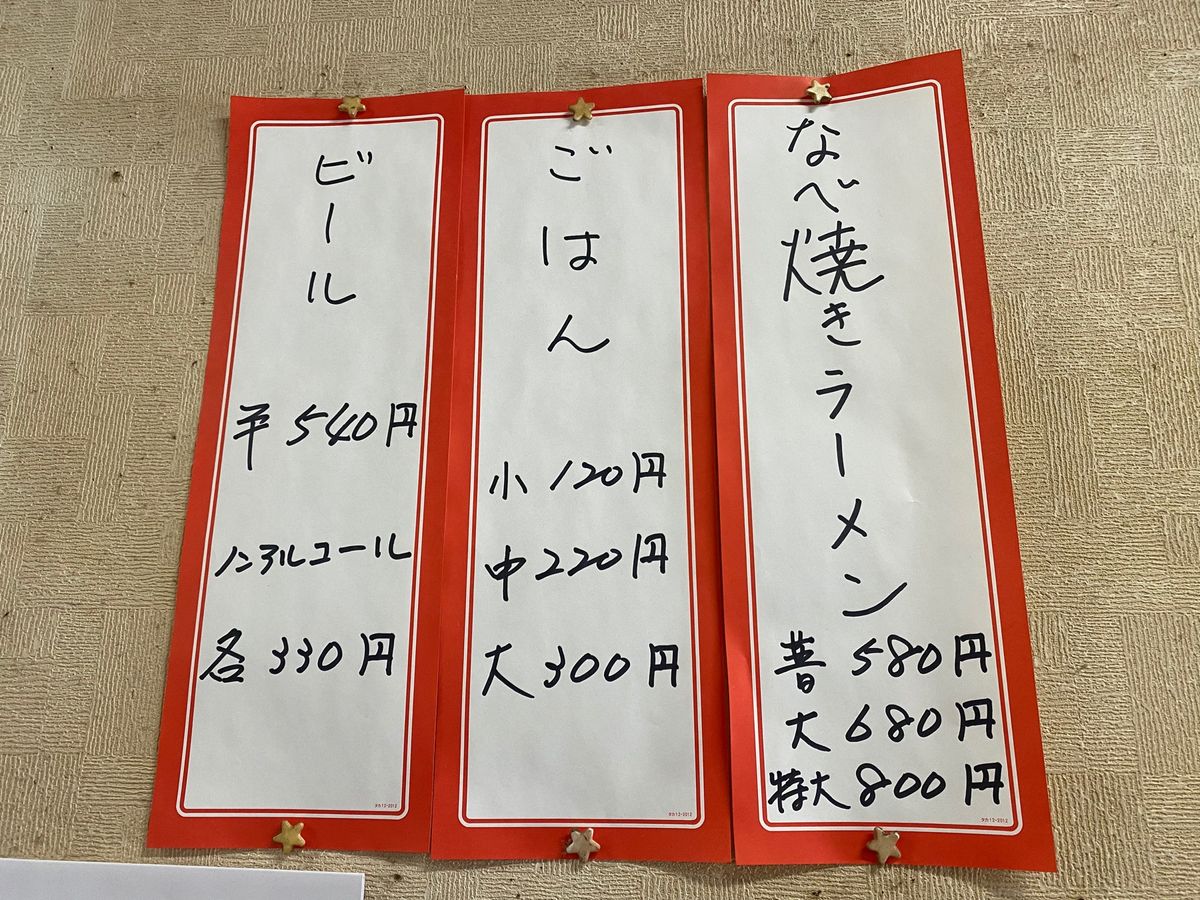 なべ焼きラーメン
普 580円
大 680円
特大 800円
タカ12-2012
ごはん
小 120円
中 220円
大 300円
タカ12-2012
ビール
540円
ノンアルコール
各 330円
タカ12-2012